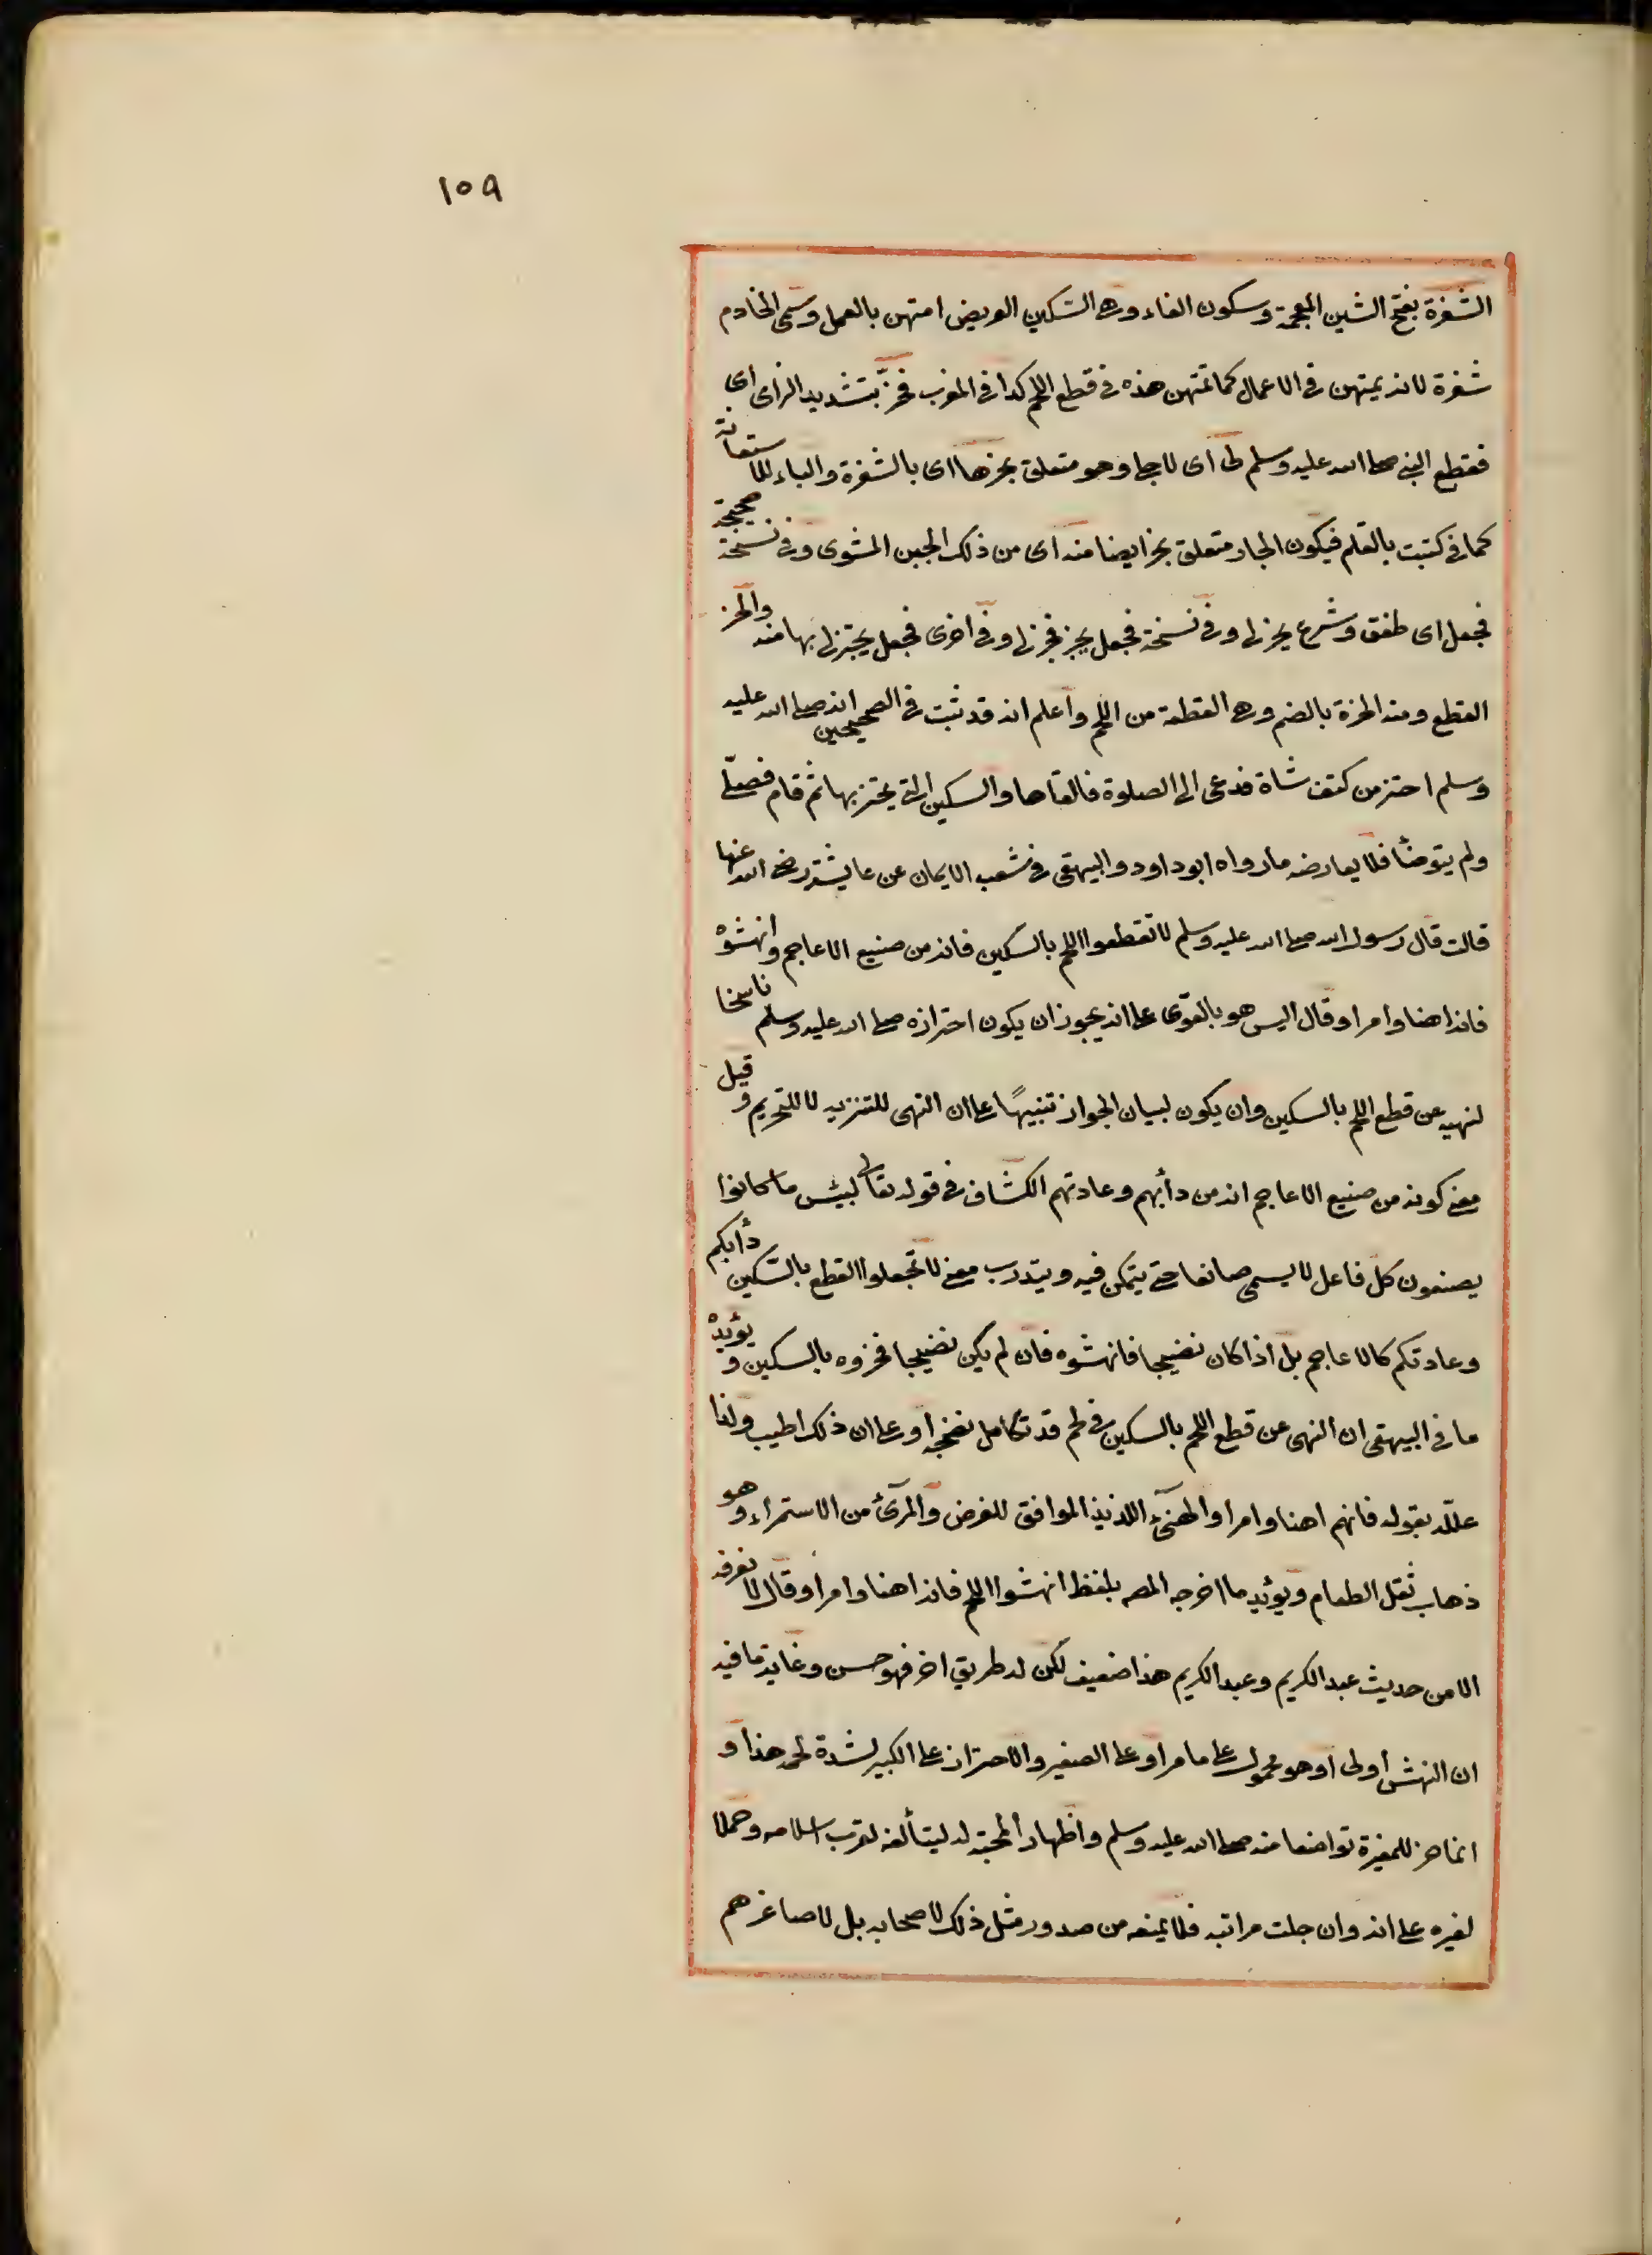 ١٥٩
الشفرة بفتح الشين المعجمة وسكون الفاء وهى السّكين العريض امتهن بالعمل وسمّى الخادم
شفرة لانه يمتهن فى الاعمال كما تمتهن هذه فى قطع اللحم كذا فى المغرب فحزّ بتشديد الزاى اى
فقطع النبى صلى الله عليه وسلم لى اى لاجلى وهو متعلق بحز بها اى بالشفرة والباء للاستعانة
كما فى كتبت بالقلم فيكون الجار متعلق بحز ايضا منه اى من ذلك الجبن المشوى وفى نسخة صحيحة
فجعل اى طفق وشرع يحز لى وفى نسخة فجعل يحز فحز لى وفى اخرى فجعل يحتز لى بها منه والحز
القطع ومنه الحزة بالضم وهى القطعة من اللحم واعلم انه قد ثبت فى الصحيحين انه صلى الله عليه
وسلم احتز من كتف شاة فدعى الى الصلوة فالقاها والسكين التى يحتز بها ثم قام فصلّى
ولم يتوضأ فلا يعارضه ما رواه ابو داود والبيهقى فى شعب الايمان عن عايشة رضى الله عنها
قالت قال رسول الله صلى الله عليه وسلم لا تقطعوا اللحم بالسكين فانه من صنيع الاعاجم وانهشوه
فانه اهنا وامرا وقال اليس هو بالقوى على انه يجوز ان يكون احترازه صلى الله عليه وسلم ناسخا
لنهيه عن قطع اللحم بالسكين وان يكون لبيان الجواز تنبيهًا على ان النهى للتنزيه لا للتحريم وقيل
معنى كونه من صنيع الاعاجم انه من دأبهم وعادتهم الكشاف فى قوله تعالى لبئس ما كانوا
يصنعون كل فاعل لا يسمى صانعا حتى يتمكن فيه ويتدرب معنى لا تجعلوا القطع بالسّكين دأبكم
وعادتكم كالاعاجم بل اذا كان نضيجا فانهشوه فان لم يكن نضيجا فحزوه بالسكين ويؤيده
ما فى البيهقى ان النهى عن قطع اللحم بالسكين فى لحم قد تكامل نضجه او على ان ذلك اطيب ولذا
علّله بقوله فانهم اهنا وامرا والهنئ اللذيذ الموافق للغرض والمرئ من الاستمراء وهو
ذهاب ثقل الطعام ويؤيد ما اخرجه المصـ بلفظ انهشوا اللحم فانه اهنا وامرا وقال لا نعرفه
الا من حديث عبد الكريم وعبد الكريم هذا ضعيف لكن له طريق اخر فهو حسن وغاية ما فيه
ان النهش اولى او هو محمول على ما مر او على الصغير والاحتزاز على الكبير لشدة لحمه هذا و
انما حز للمغيرة تواضعا منه صلى الله عليه وسلم واظهارا لمحبته له ليتألفه لقرب اسلامه وحملا
لغيره على انه وان جلت مراتبه فلا يمنعه من صدور مثل ذلك لاصحابه بل لاصاغرهم